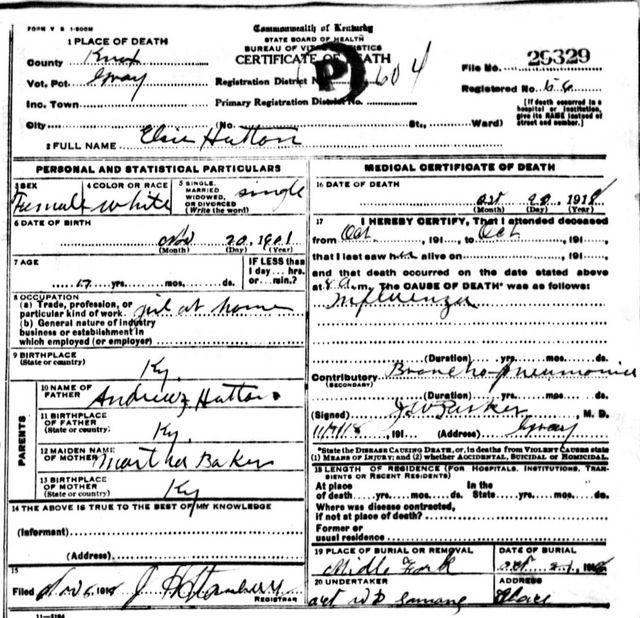 FORM V S 1-500M
Commonwealth of Kentucky
STATE BOARD OF HEALTH
BUREAU OF VITAL STATISTICS
CERTIFICATE OF DEATH
1 PLACE OF DEATH
County Knox
Vot. Pct. Gray
Inc. Town
City (No. St., Ward)
Registration District No. 604
P
Primary Registration District No.
File No. 26329
Registered No. 56
[If death occurred in a hospital or institution, give its NAME instead of street and number.]
2 FULL NAME Elsie Hutton
PERSONAL AND STATISTICAL PARTICULARS
3 SEX Female
4 COLOR OR RACE White
5 SINGLE, MARRIED WIDOWED, OR DIVORCED (Write the word) single
6 DATE OF BIRTH
Nov 20, 1901
(Month) (Day) (Year)
7 AGE
17 yrs. mos. ds.
IF LESS than 1 day... hrs. or... min.?
8 OCCUPATION
(a) Trade, profession, or particular kind of work at home
(b) General nature of industry business or establishment in which employed (or employer)
9 BIRTHPLACE
(State or country) Ky.
PARENTS
10 NAME OF FATHER Andrew Hutton
11 BIRTHPLACE OF FATHER
(State or country) Ky.
12 MAIDEN NAME OF MOTHER Martha Baker
13 BIRTHPLACE OF MOTHER
(State or country) Ky
14 THE ABOVE IS TRUE TO THE BEST OF MY KNOWLEDGE
(Informant)
(Address)
15
Filed Nov 6 1918
REGISTRAR
11-3184
MEDICAL CERTIFICATE OF DEATH
16 DATE OF DEATH
Oct 20, 1918
(Month) (Day) (Year)
17 I HEREBY CERTIFY, That I attended deceased
from Oct, 191 to Oct, 191
that I last saw her alive on, 191
and that death occurred on the date stated above
at 8 a m. The CAUSE OF DEATH* was as follows:
Influenza
(Duration) yrs. mos. ds.
Contributory Broncho-pneumonia
(SECONDARY)
(Duration) yrs. mos. ds.
(Signed) J W Parker, M. D.
, 191 (Address) Gray
*State the DISEASE CAUSING DEATH, or, in deaths from VIOLENT CAUSES state (1) MEANS OF INJURY; and (2) whether ACCIDENTAL, SUICIDAL or HOMICIDAL.
18 LENGTH OF RESIDENCE (FOR HOSPITALS, INSTITUTIONS, TRANSIENTS OR RECENT RESIDENTS)
At place of death yrs. mos. ds. In the State yrs. mos. ds.
Where was disease contracted, if not at place of death?
Former or usual residence
19 PLACE OF BURIAL OR REMOVAL
Middle Fork
DATE OF BURIAL
Oct 21, 191
20 UNDERTAKER
ADDRESS